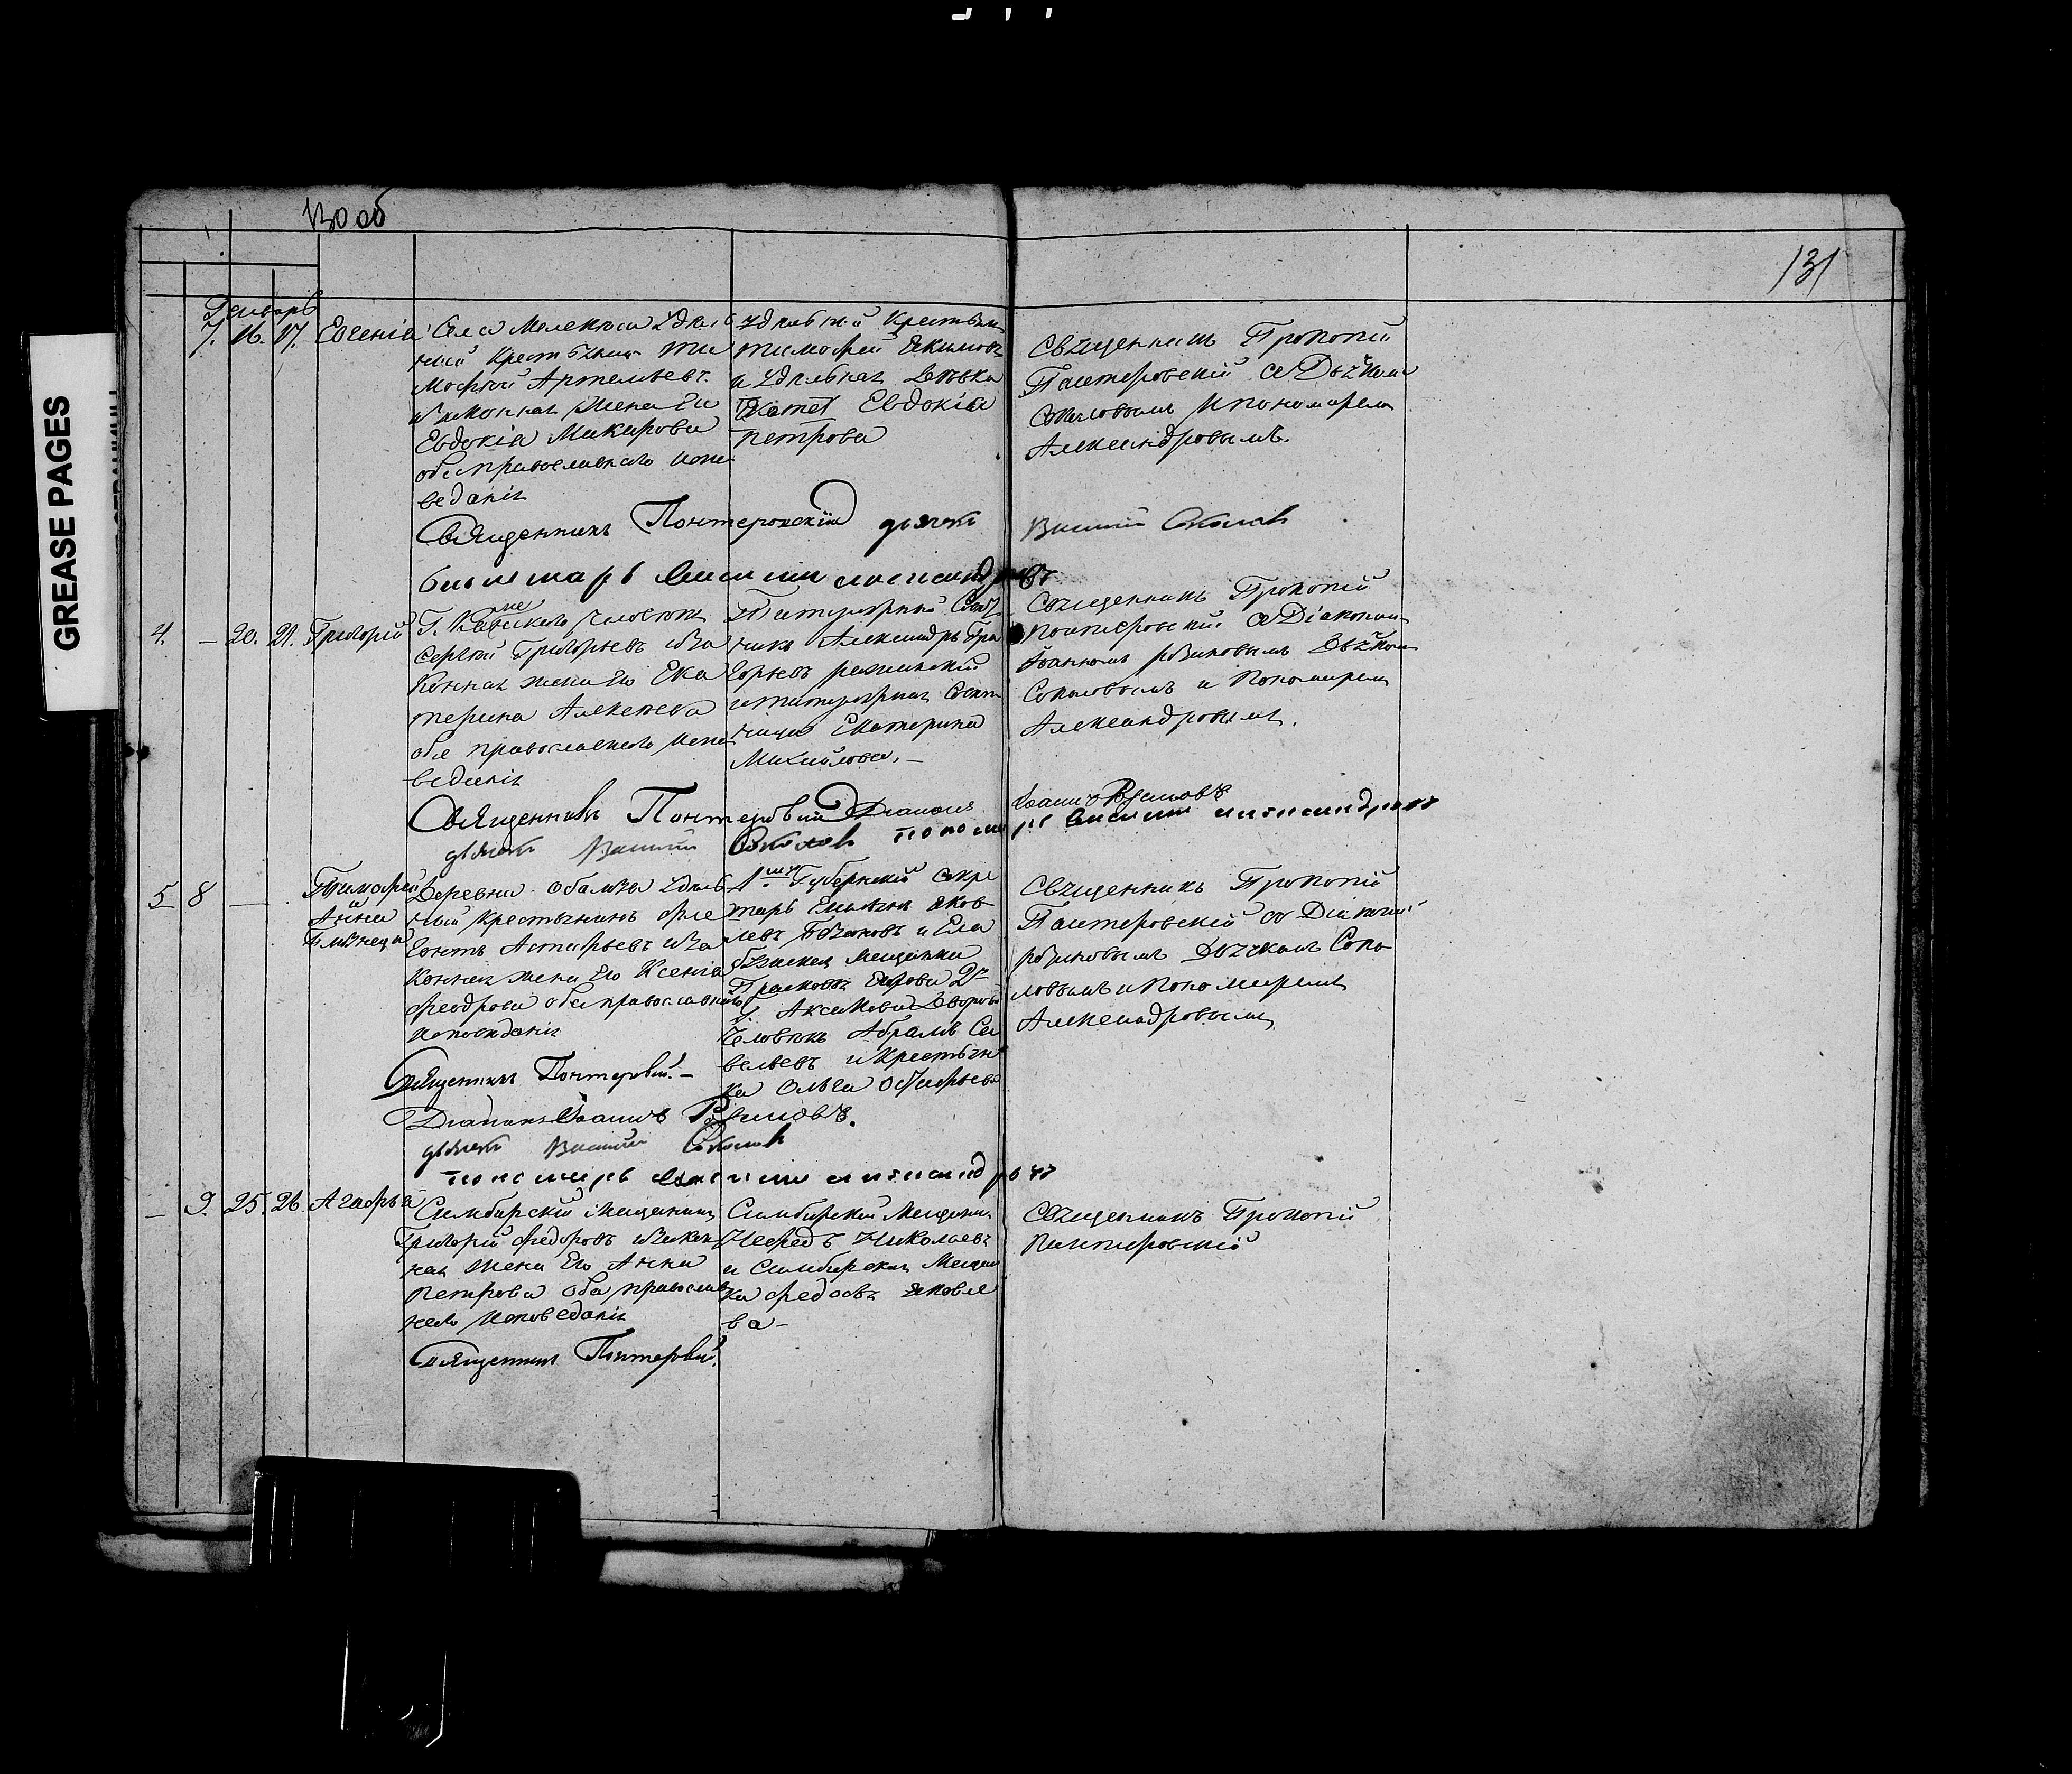 131
GREASE PAGES
Генварь
7. 16. 17. Евгенія
Села Мелекеса Удѣль
ный Крестьянинъ Ти
мофей Артемьевъ
и законная жена Его
Евдокія Макарова
оба православнаго испо
веданія
Удѣльный Крестьян
Тимофей Екимовъ
и Удѣльная Девька
Евдокія
петрова
Священникъ Прокопій
Пантеровскій съ Дьячкомъ
Соколовымъ и пономаремъ
Александровымъ.
Священникъ Понтеровскій дьячекъ Василій Соколовъ
4. – 20. 21. Григорій
Сергей Григорьевъ и за
конная жена Его Ека
терина Алексеева
оба православнаго испо
веданія
Титулярный Совет
никъ Александръ Гри
горьевъ
и титулярная Совет
ница Екатерина
Михайлова. –
Священникъ Прокопій
Понтеровскій съ Діакономъ
Іоанномъ Дьячком
Соколовымъ и Пономаремъ
Александровымъ.
Священникъ Понтеровскій Діаконъ Іоаннъ
дьячекъ Василій Соколовъ пономарь Василій Александровъ
5 8 –
Тимофей
и
Анна
Близнецы
Деревни Удѣль
ный Крестьянинъ Фле
гонтъ Астафьевъ и за
конная жена Его Ксенія
Феодрова оба православнаго
исповѣданія
Губернскій Секре
тарь Емельянъ Яков
левъ и Ела
бужская Мещанка
Прасковья Егорова 2й
Г. Аксакова Дворовой
Человѣкъ Абрамъ Са
вельевъ и Крестьян
ка Ольга Остафьева
Священникъ Прокопій
Пантеровскій съ Діакономъ
Дьячкомъ Соко
ловымъ и Пономаремъ
Александровымъ
Священникъ Понтеровскій. –
Діаконъ Іоаннъ
дьячекъ Василій Соколовъ
пономарь Василій Александровъ
– 9. 25. 26. Агафья
Симбирскій Мещанинъ
Григорій Федоровъ и закон
ная жена Его Анна
Петрова оба православ
наго исповеданія
Симбирскій Мещани
Нефедъ Николаевъ
и Симбирская Мещан
ка Федосья Яковле
ва –
Священникъ Прокопій
Пантеровскій
Священникъ Понтеровскій.